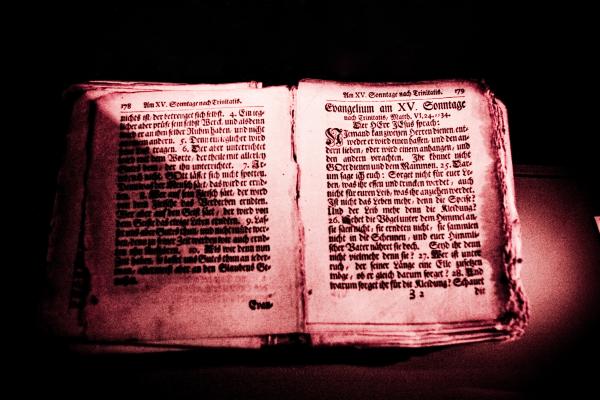 178 Am XV. Sonntage nach Trinitatis.
nichts ist, der betreuget sich selbst. 4. Ein ieg-
licher aber prüfe sein selbst Werck, und alsdenn
wird er an ihm selber Ruhm haben, und nicht
an einem andern. 5. Denn ieglicher wird
seine Last tragen. 6. Der aber unterrichtet
wird mit dem Worte, der theile mit allerley
der ihn unterrichtet. 7. Ir-
GOtt läßt sich nicht spotten.
der Mensch säet, das wird er ernd-
Fleisch säet, der wird
Fleische das Verderben erndten.
Wer aber auf den Geist säet, der wird von
dem Geiste das ewige Leben erndten. 9. Las-
Gutes
wir auch ernd-
10. Als wir denn nun
so lasset uns Gutes thun an ieder-
allermeist aber an den Glaubens Ge-
Evan-
Am XV. Sonntage nach Trinitatis. 179
Evangelium am XV. Sonntage
nach Trinitatis, Matth. VI, 24.-34.
Der HErr JEsus sprach:
Niemand kan zweyen Herren dienen, ent-
weder er wird einen hassen, und den an-
dern lieben, oder wird einem anhangen, und
den andern verachten. Ihr könnet nicht
GOtt dienen und dem Mammon. 25. Dar-
um sage ich euch: Sorget nicht für euer Le-
ben, was ihr essen und trincken werdet, auch
nicht für euren Leib, was ihr anziehen werdet.
Ist nicht das Leben mehr, denn die Speise?
Und der Leib mehr denn die Kleidung?
26. Sehet die Vögel unter dem Himmel an,
sie säen nicht, sie erndten nicht, sie sammlen
nicht in die Scheunen, und euer Himmli-
scher Vater nähret sie doch. Seyd ihr denn
nicht vielmehr denn sie? 27. Wer ist unter
euch, der seiner Länge eine Elle zusetzen
möge, ob er gleich darum sorget? 28. Und
warum sorget ihr für die Kleidung? Schauet
3 2 die